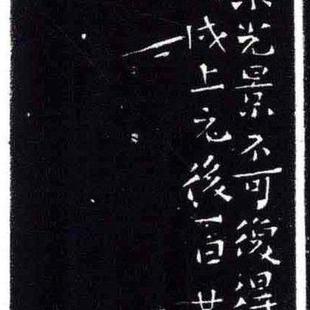 光景不可復得
戌上元後一日